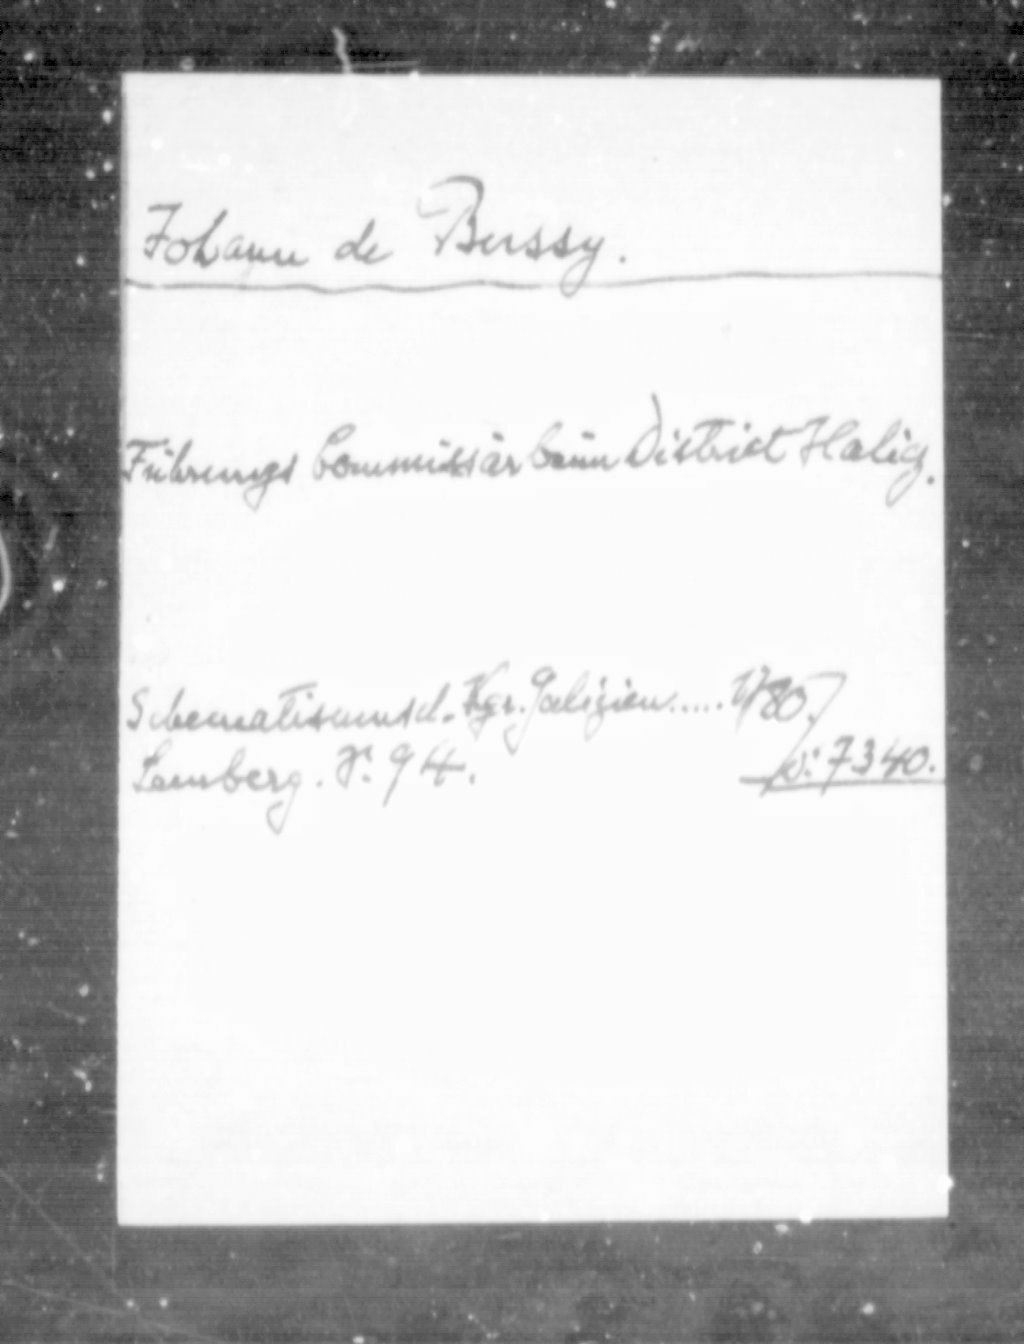 Johann de Bussy.
Führungs Commissär beim District Halicz.
Schematismus d. Kgr. Galizien..... 1780.
Lemberg. S. 94.
7340.